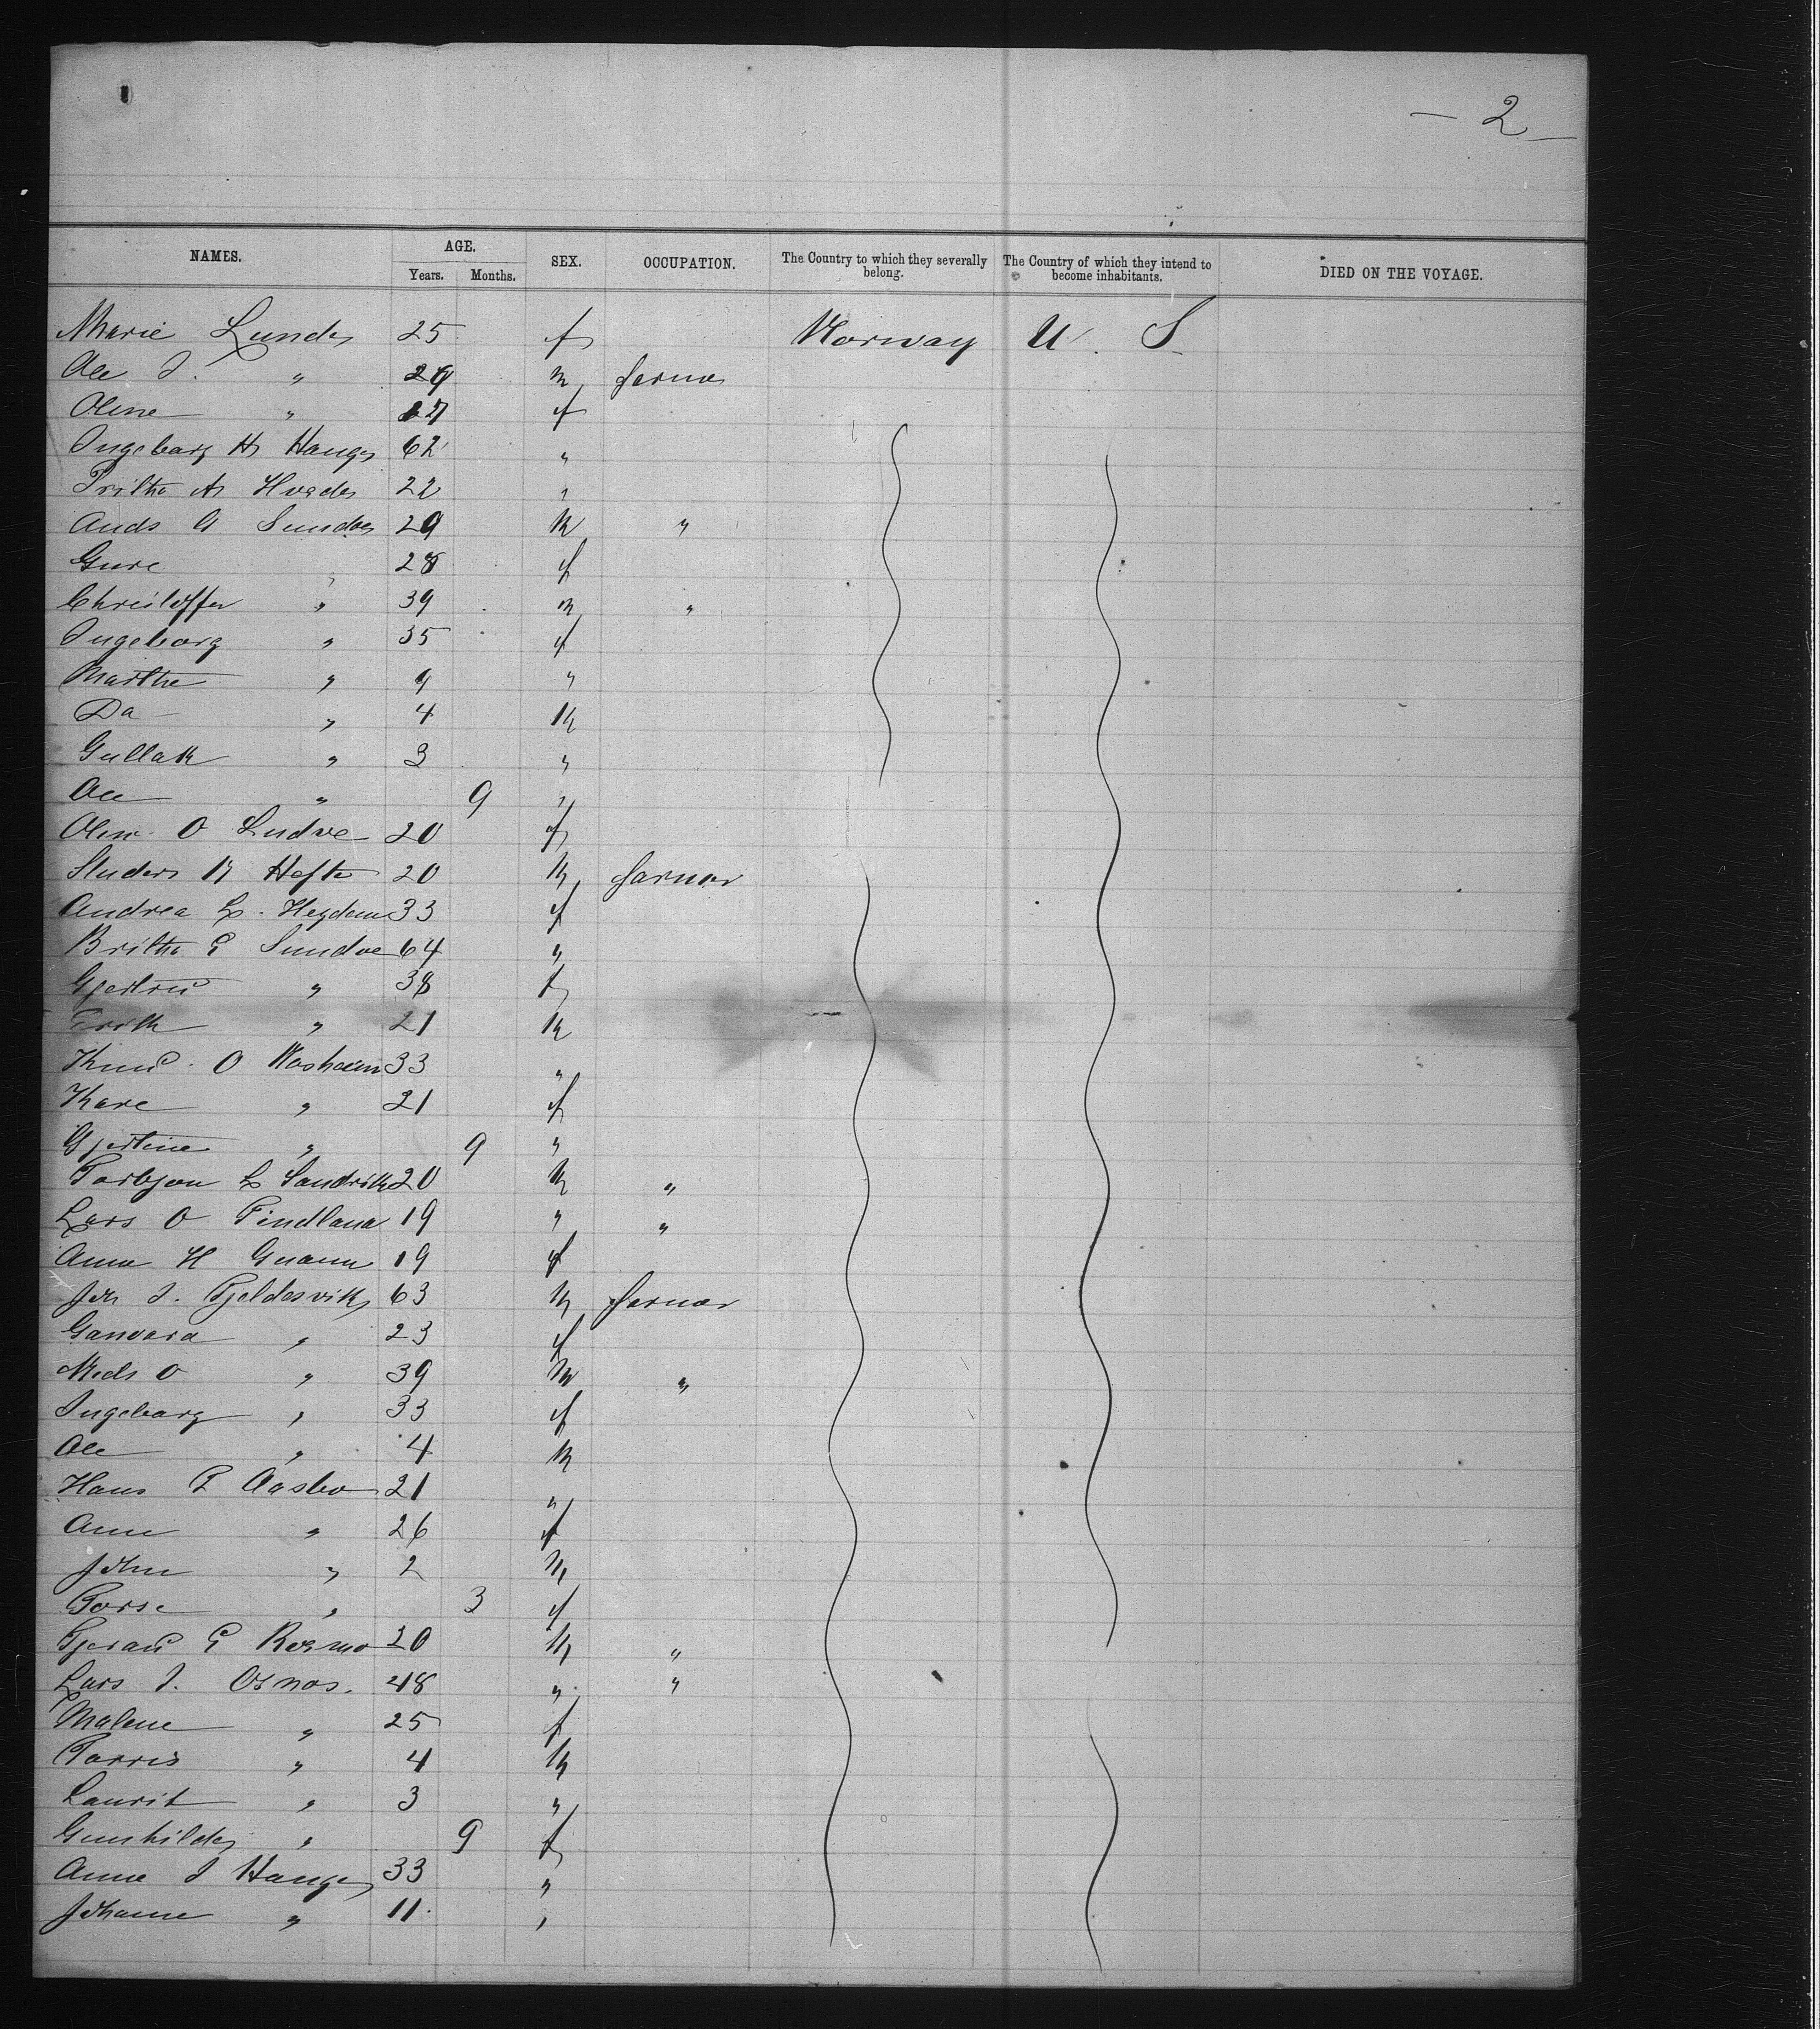 — 2 —
NAMES. AGE. SEX. OCCUPATION. The Country to which they severally belong. The Country of which they intend to become inhabitants. DIED ON THE VOYAGE.
Years. Months.
Marie Lunde 25 f Norway U. S.
Ole J. " m farmer
Oline " f
Ingeborg H Hauge 62 "
Britha A 22 "
Ands G Sundve 29 m "
Gure " 28 f
Christoffer " 39 m "
Ingeborg " 35 f
Marthe " 9 "
Da " 4 m
Gullak " 3 "
Ole " 9 "
Oline O Ludve 20 f
K Hefte 20 m farmer
Andrea L. 33 f
Britha E Sundve 64 "
Gjertru " 38 f
Erik " 21 m
Knud O 33 "
Kare " 21 f
Gjertine " 9 "
Torbjon L Sandvik 20 m "
Lars O 19 " "
Anna H 19 f
Joh J. Tjeldesvik 63 m farmer
" 23 f
Mads O " 39 m "
Ingeborg " 33 f
Ole " 4 m
Hans P Aasbo 21 "
Anne " 26 f
John " 2 m
" 3 f
E 20 m "
Lars J. Osnos. 48 " "
Malene " 25 f
Torris " 4 m
Laurit " 3 "
Gunhilde " 9 f
Anne J Hauge 33 "
Johanne " 11 "